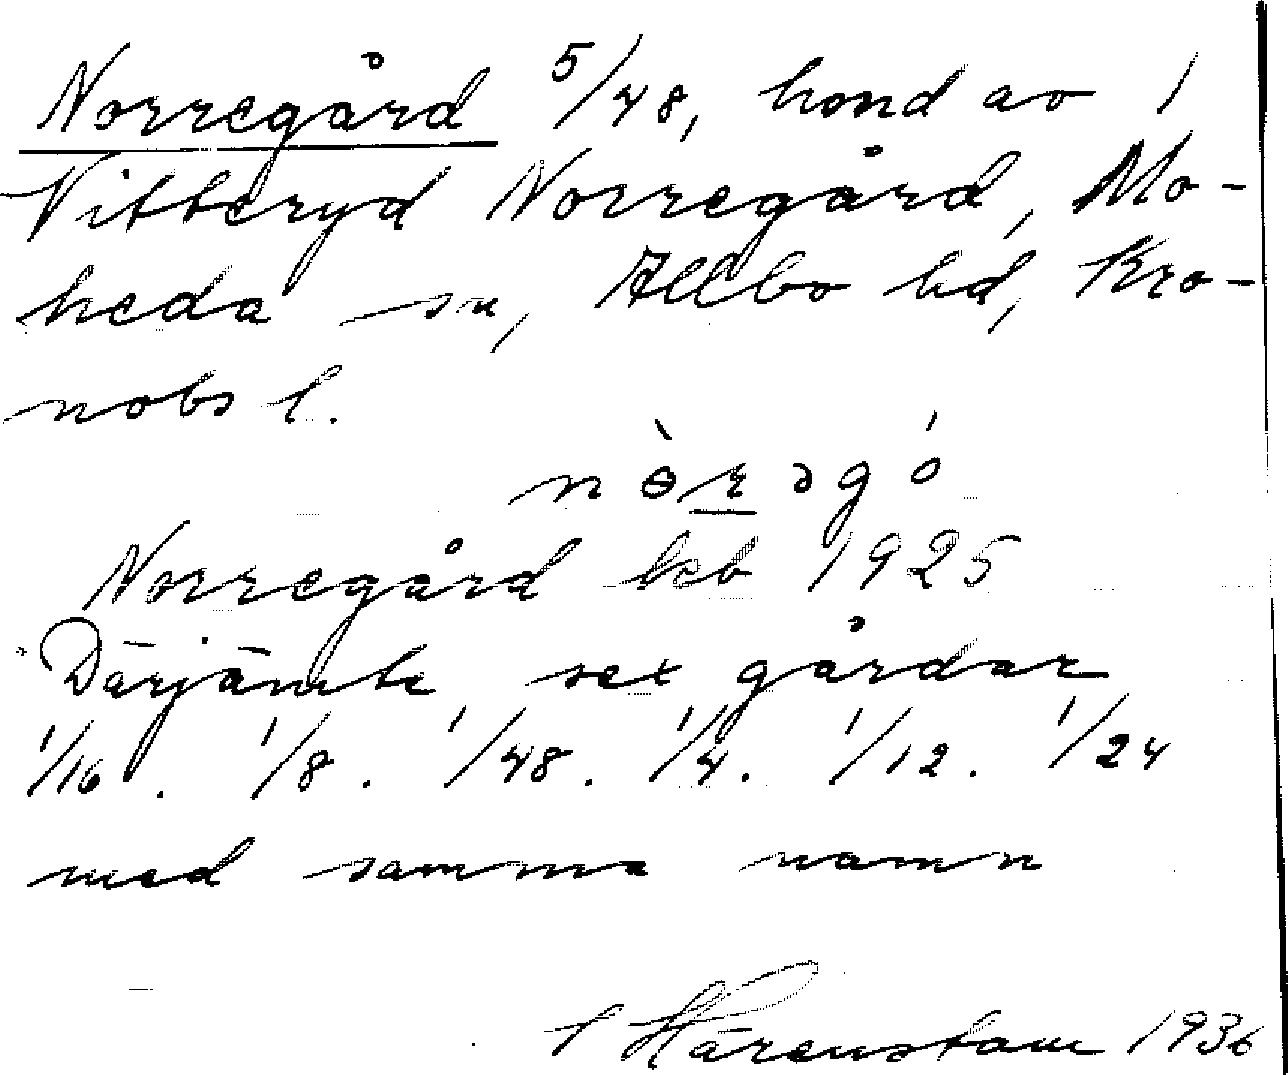 Norregård 5/48, hmd av 1
Vitteryd Norregård, Mo-
heda sn, Allbo hd, Kro-
nobs l.
nòrəgó
Norregård kcb 1925
Därjämte sex gårdar
1/16. 1/8. 1/48. 1/4. 1/12. 1/24
med samma namn
Härenstam 1936